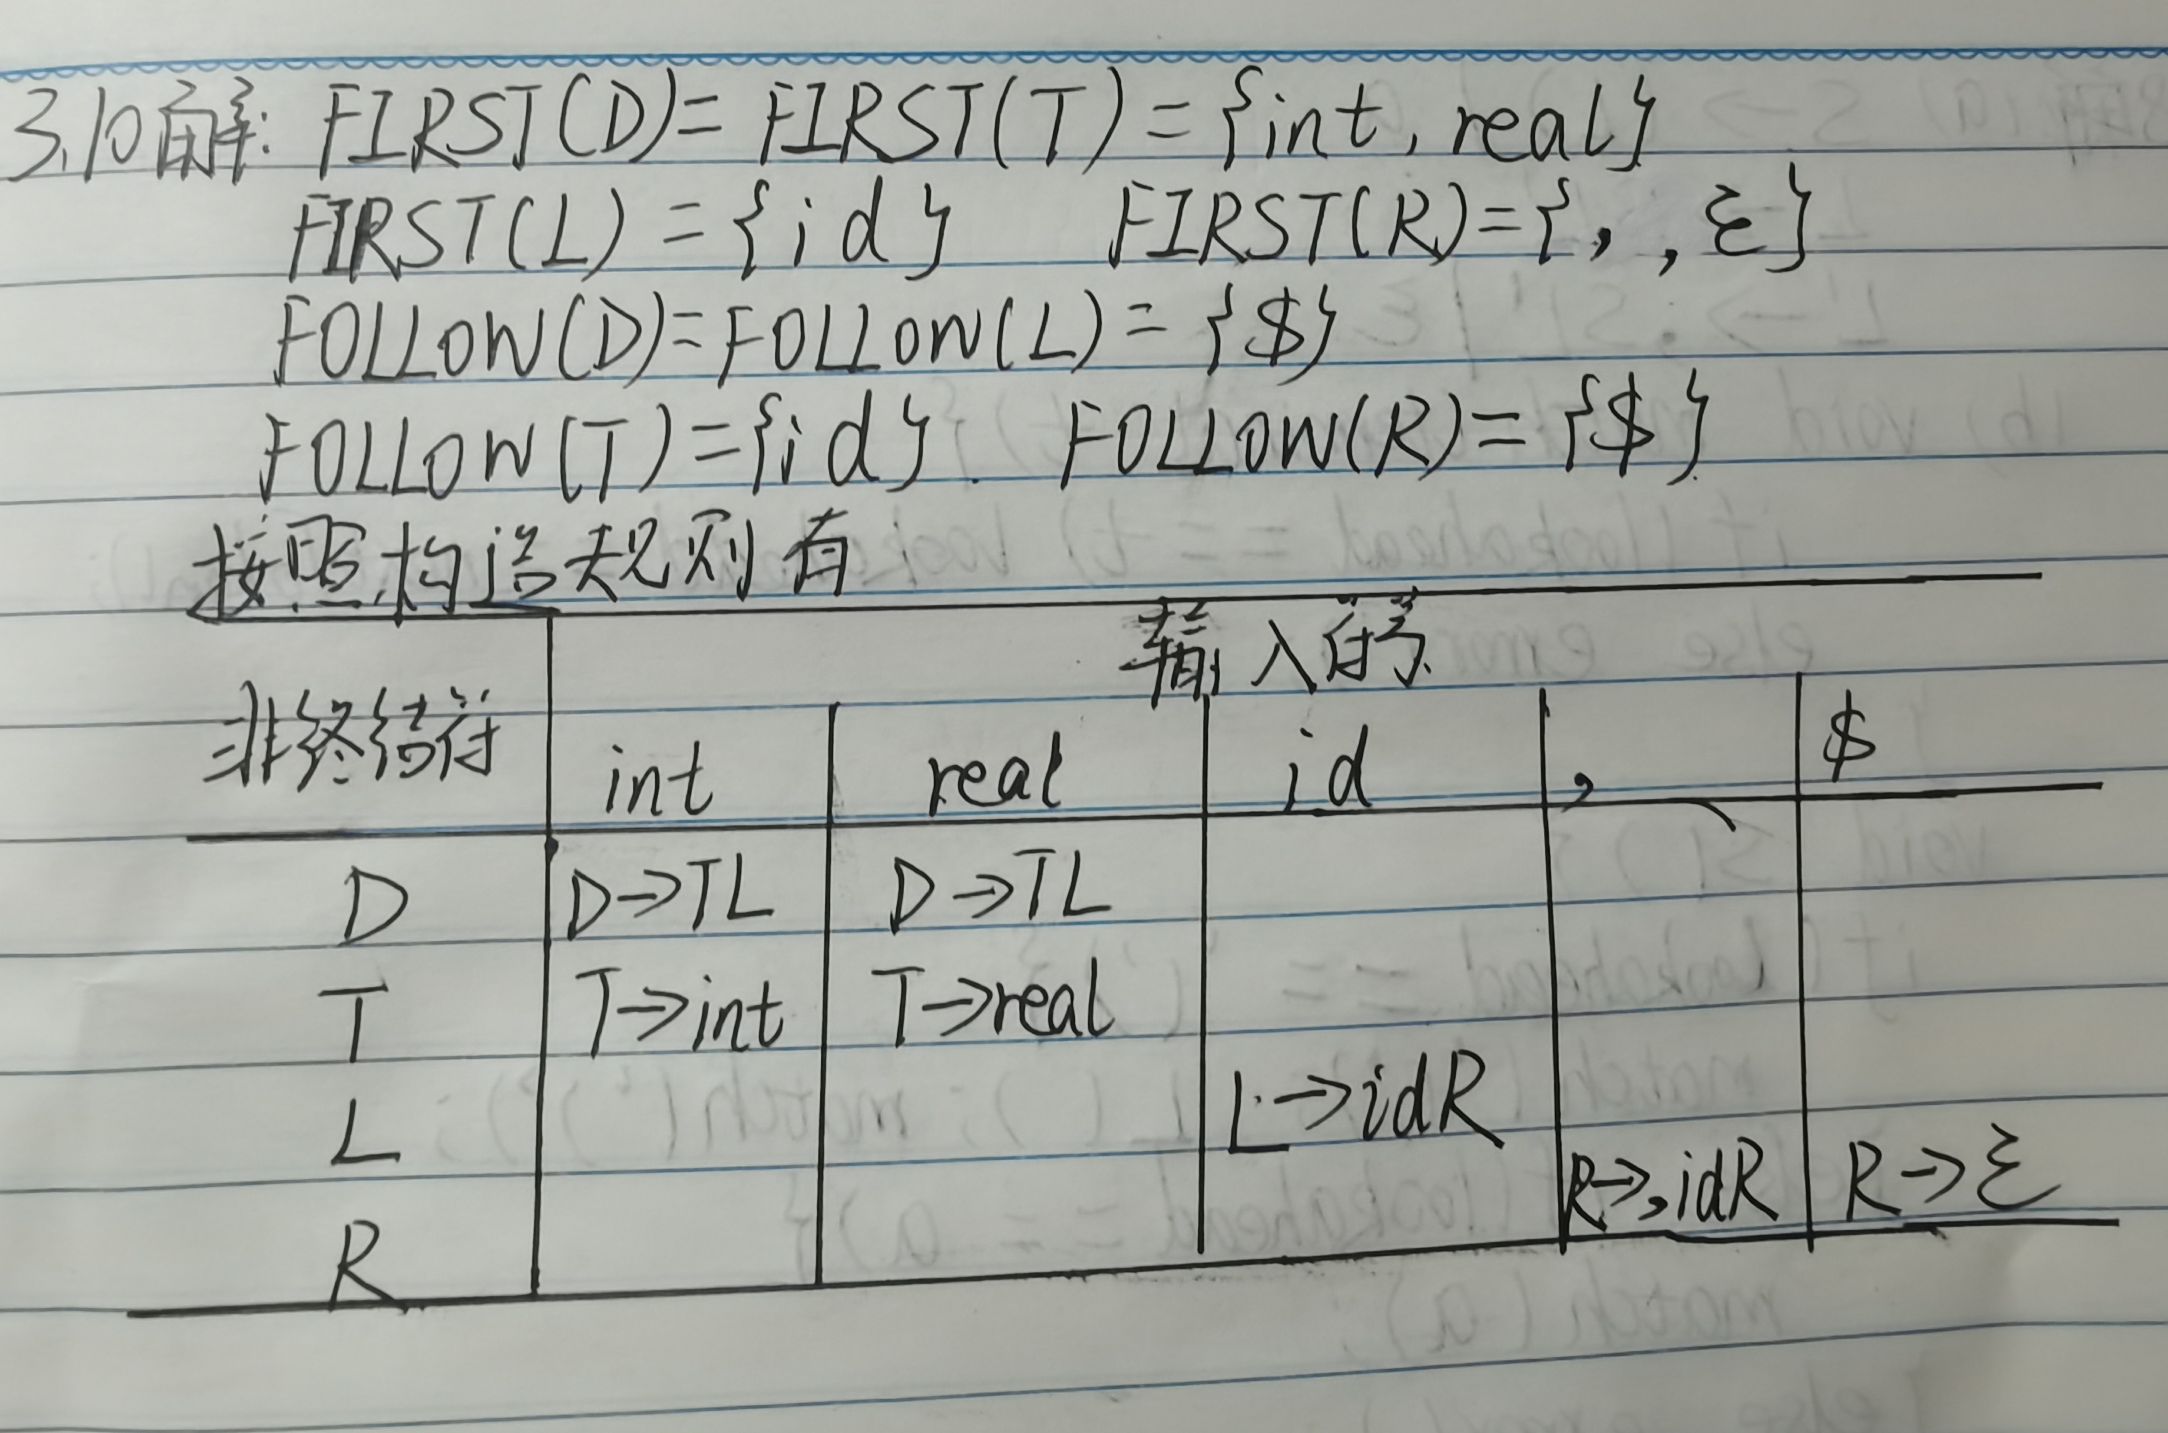 3.10解: FIRST(D)=FIRST(T)={int, real}
FIRST(L)={id} FIRST(R)={, , ε}
FOLLOW(D)=FOLLOW(L)={$}
FOLLOW(T)={id}. FOLLOW(R)={$}
按照构造规则有
输入符号
非终结符 int real id , $
D D→TL D→TL
T T→int T→real
L L→idR
R R→,idR R→ε